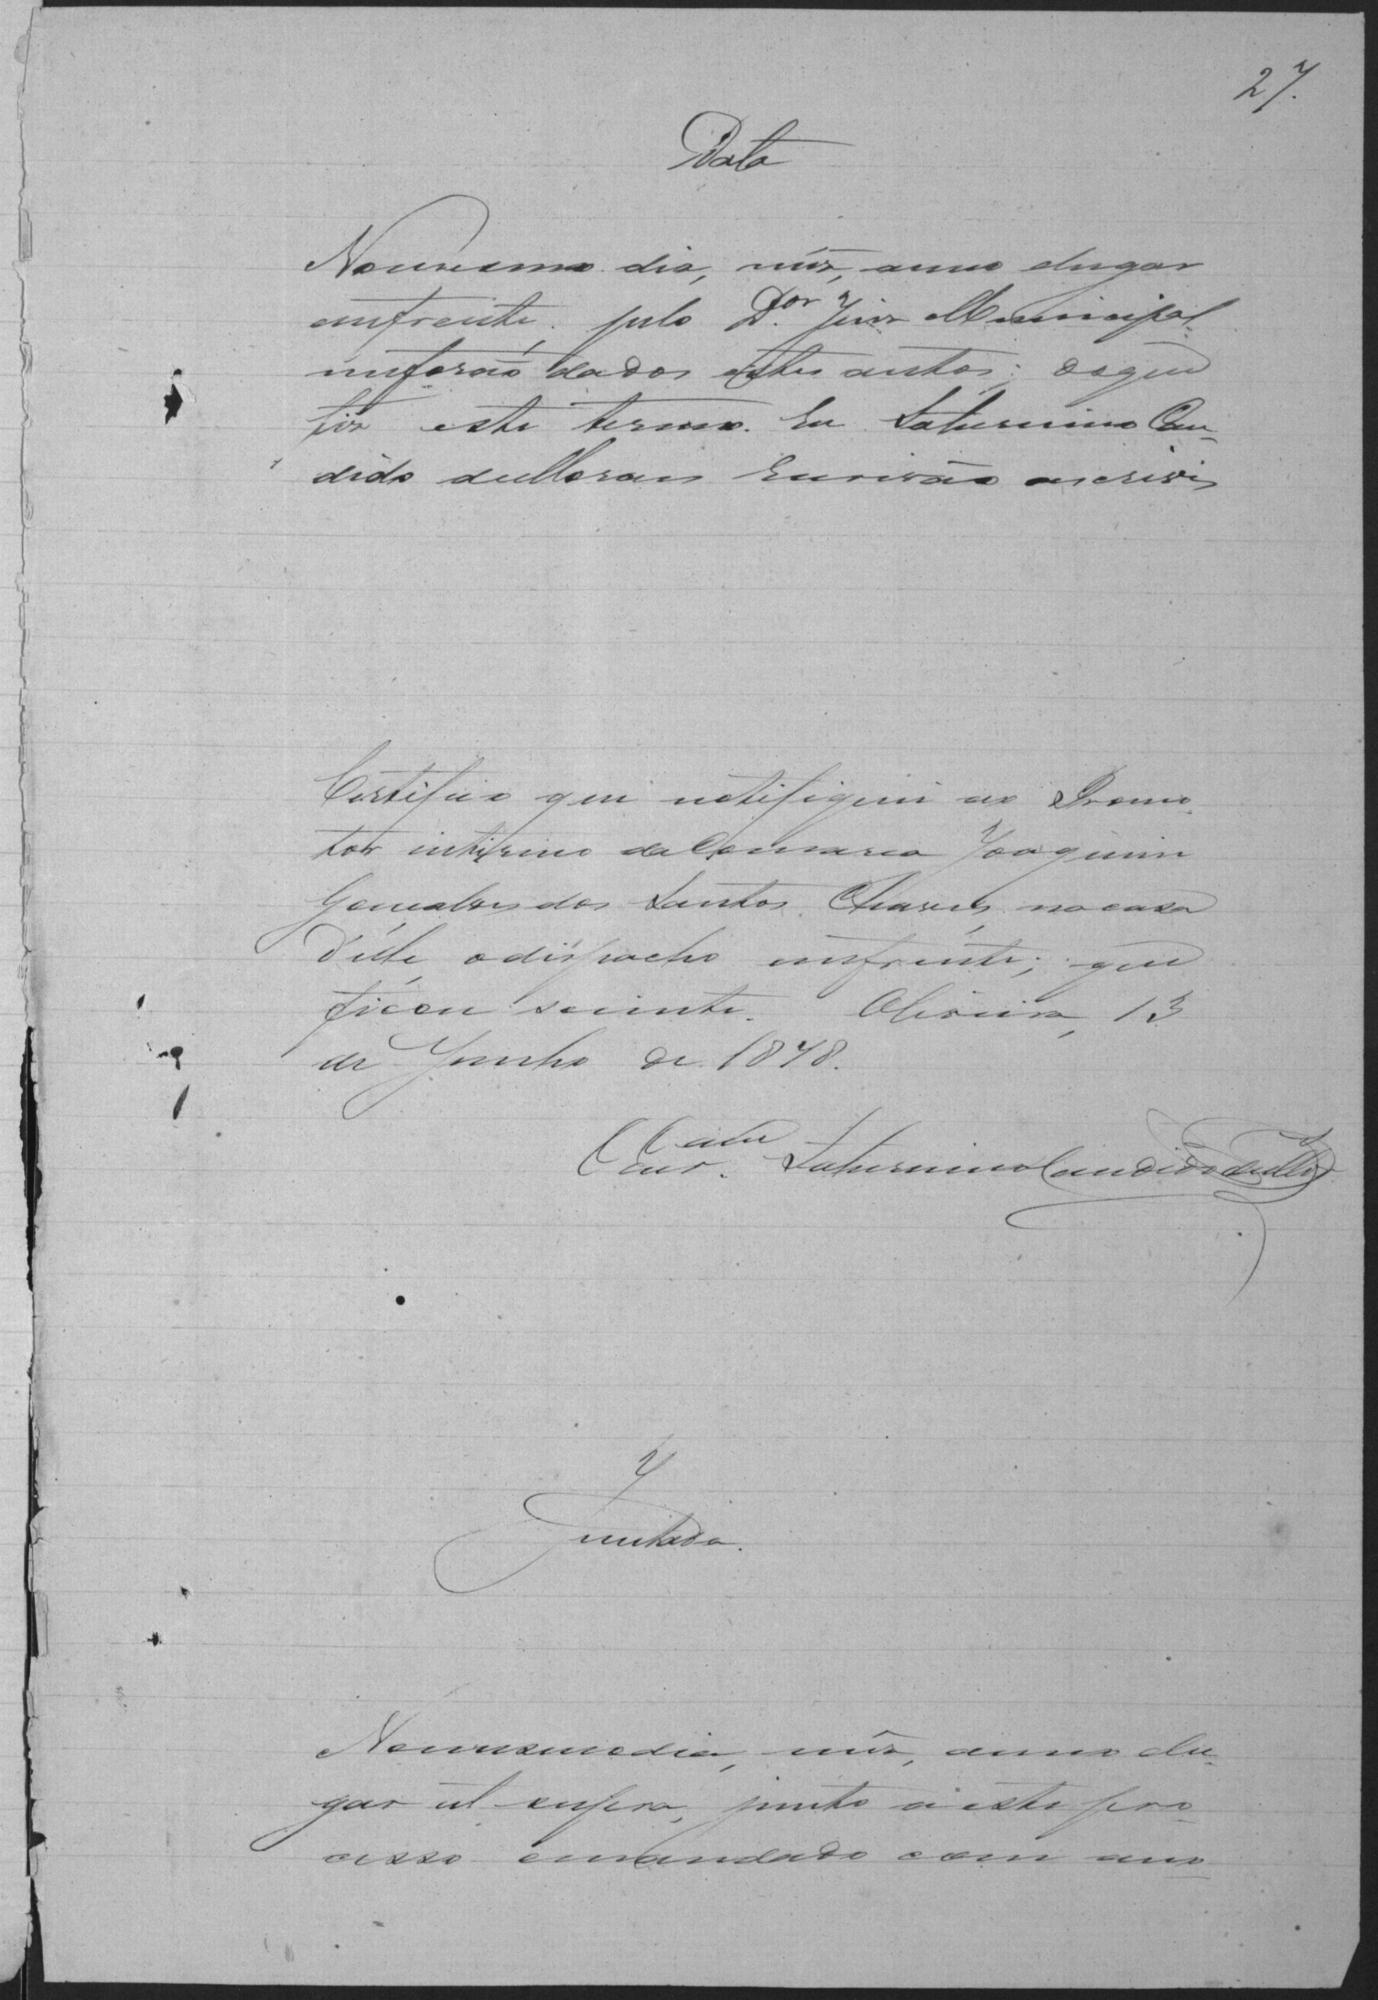 27.
Data
No mesmo dia, mez, anno e lugar
emfrente, pelo D.or Juiz Municipal
me forão dados estes autos; do que
fiz este termo. Eu Saturnino Can-
dido de Moraes Escrivão a escrivi
Certifico que notifiquei ao Promo-
tor interino da Comarca Joaquim
Gonçalves dos Santos Chaves, na casa
d'elle, o despacho emfrente; que
ficou sciente. Oliveira, 13
de Junho de 1878.
Saturnino Candido de Mor
Juntada.
No mesmo dia, mez, anno e lu-
gar ut supra, junto a este pro-
cesso o mandado com